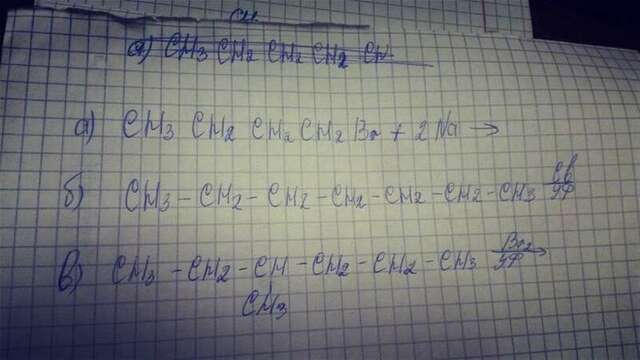 CH
а) CH3 CH2 CH2 CH2 CH
а) CH3 CH2 CH2 CH2 Br + 2 Na →
б) CH3 - CH2 - CH2 - CH2 - CH2 - CH2 - CH3 УФ
в) CH3 - CH2 - CH - CH2 - CH2 - CH3 Br2 УФ →
CH3